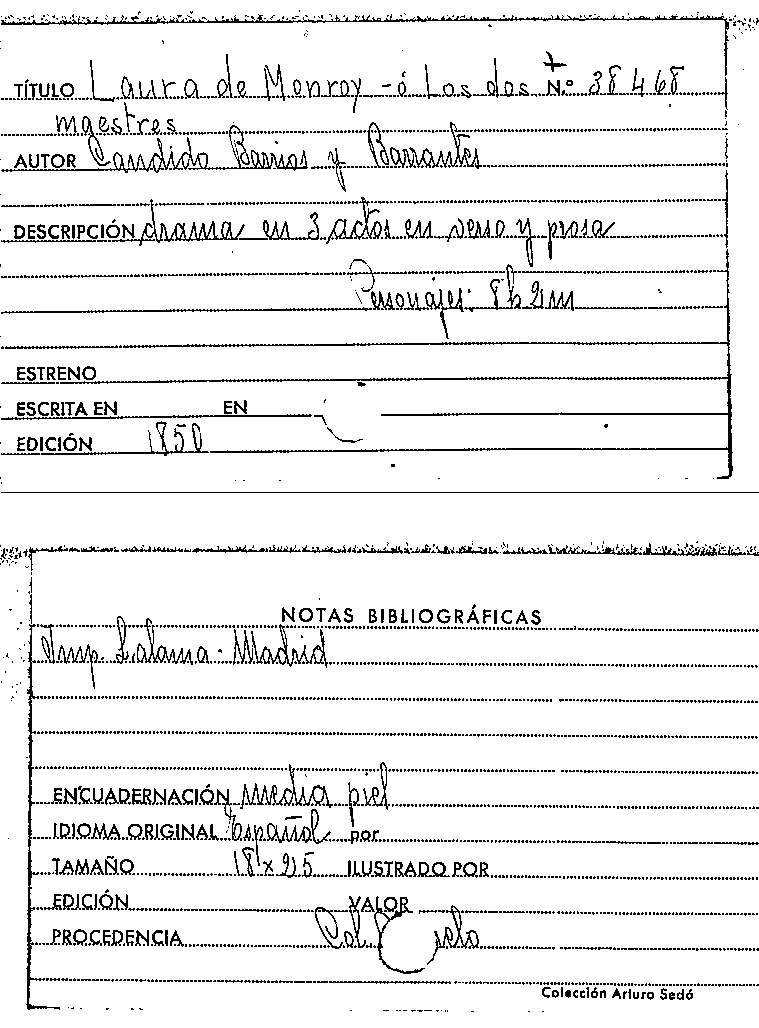 TÍTULO Laura de Monroy - ó Los dos N.º 38468
maestres
AUTOR Candido Barrios y Barrantes
DESCRIPCIÓN drama en 3 actos en verso y prosa
Personajes: 8h 2m
ESTRENO
ESCRITA EN EN
EDICIÓN 1850
NOTAS BIBLIOGRÁFICAS
Imp. Lalama - Madrid
ENCUADERNACIÓN media piel
IDIOMA ORIGINAL Español por
TAMAÑO 18'x 25 ILUSTRADO POR
EDICIÓN VALOR
PROCEDENCIA Col.
Colección Arturo Sedó